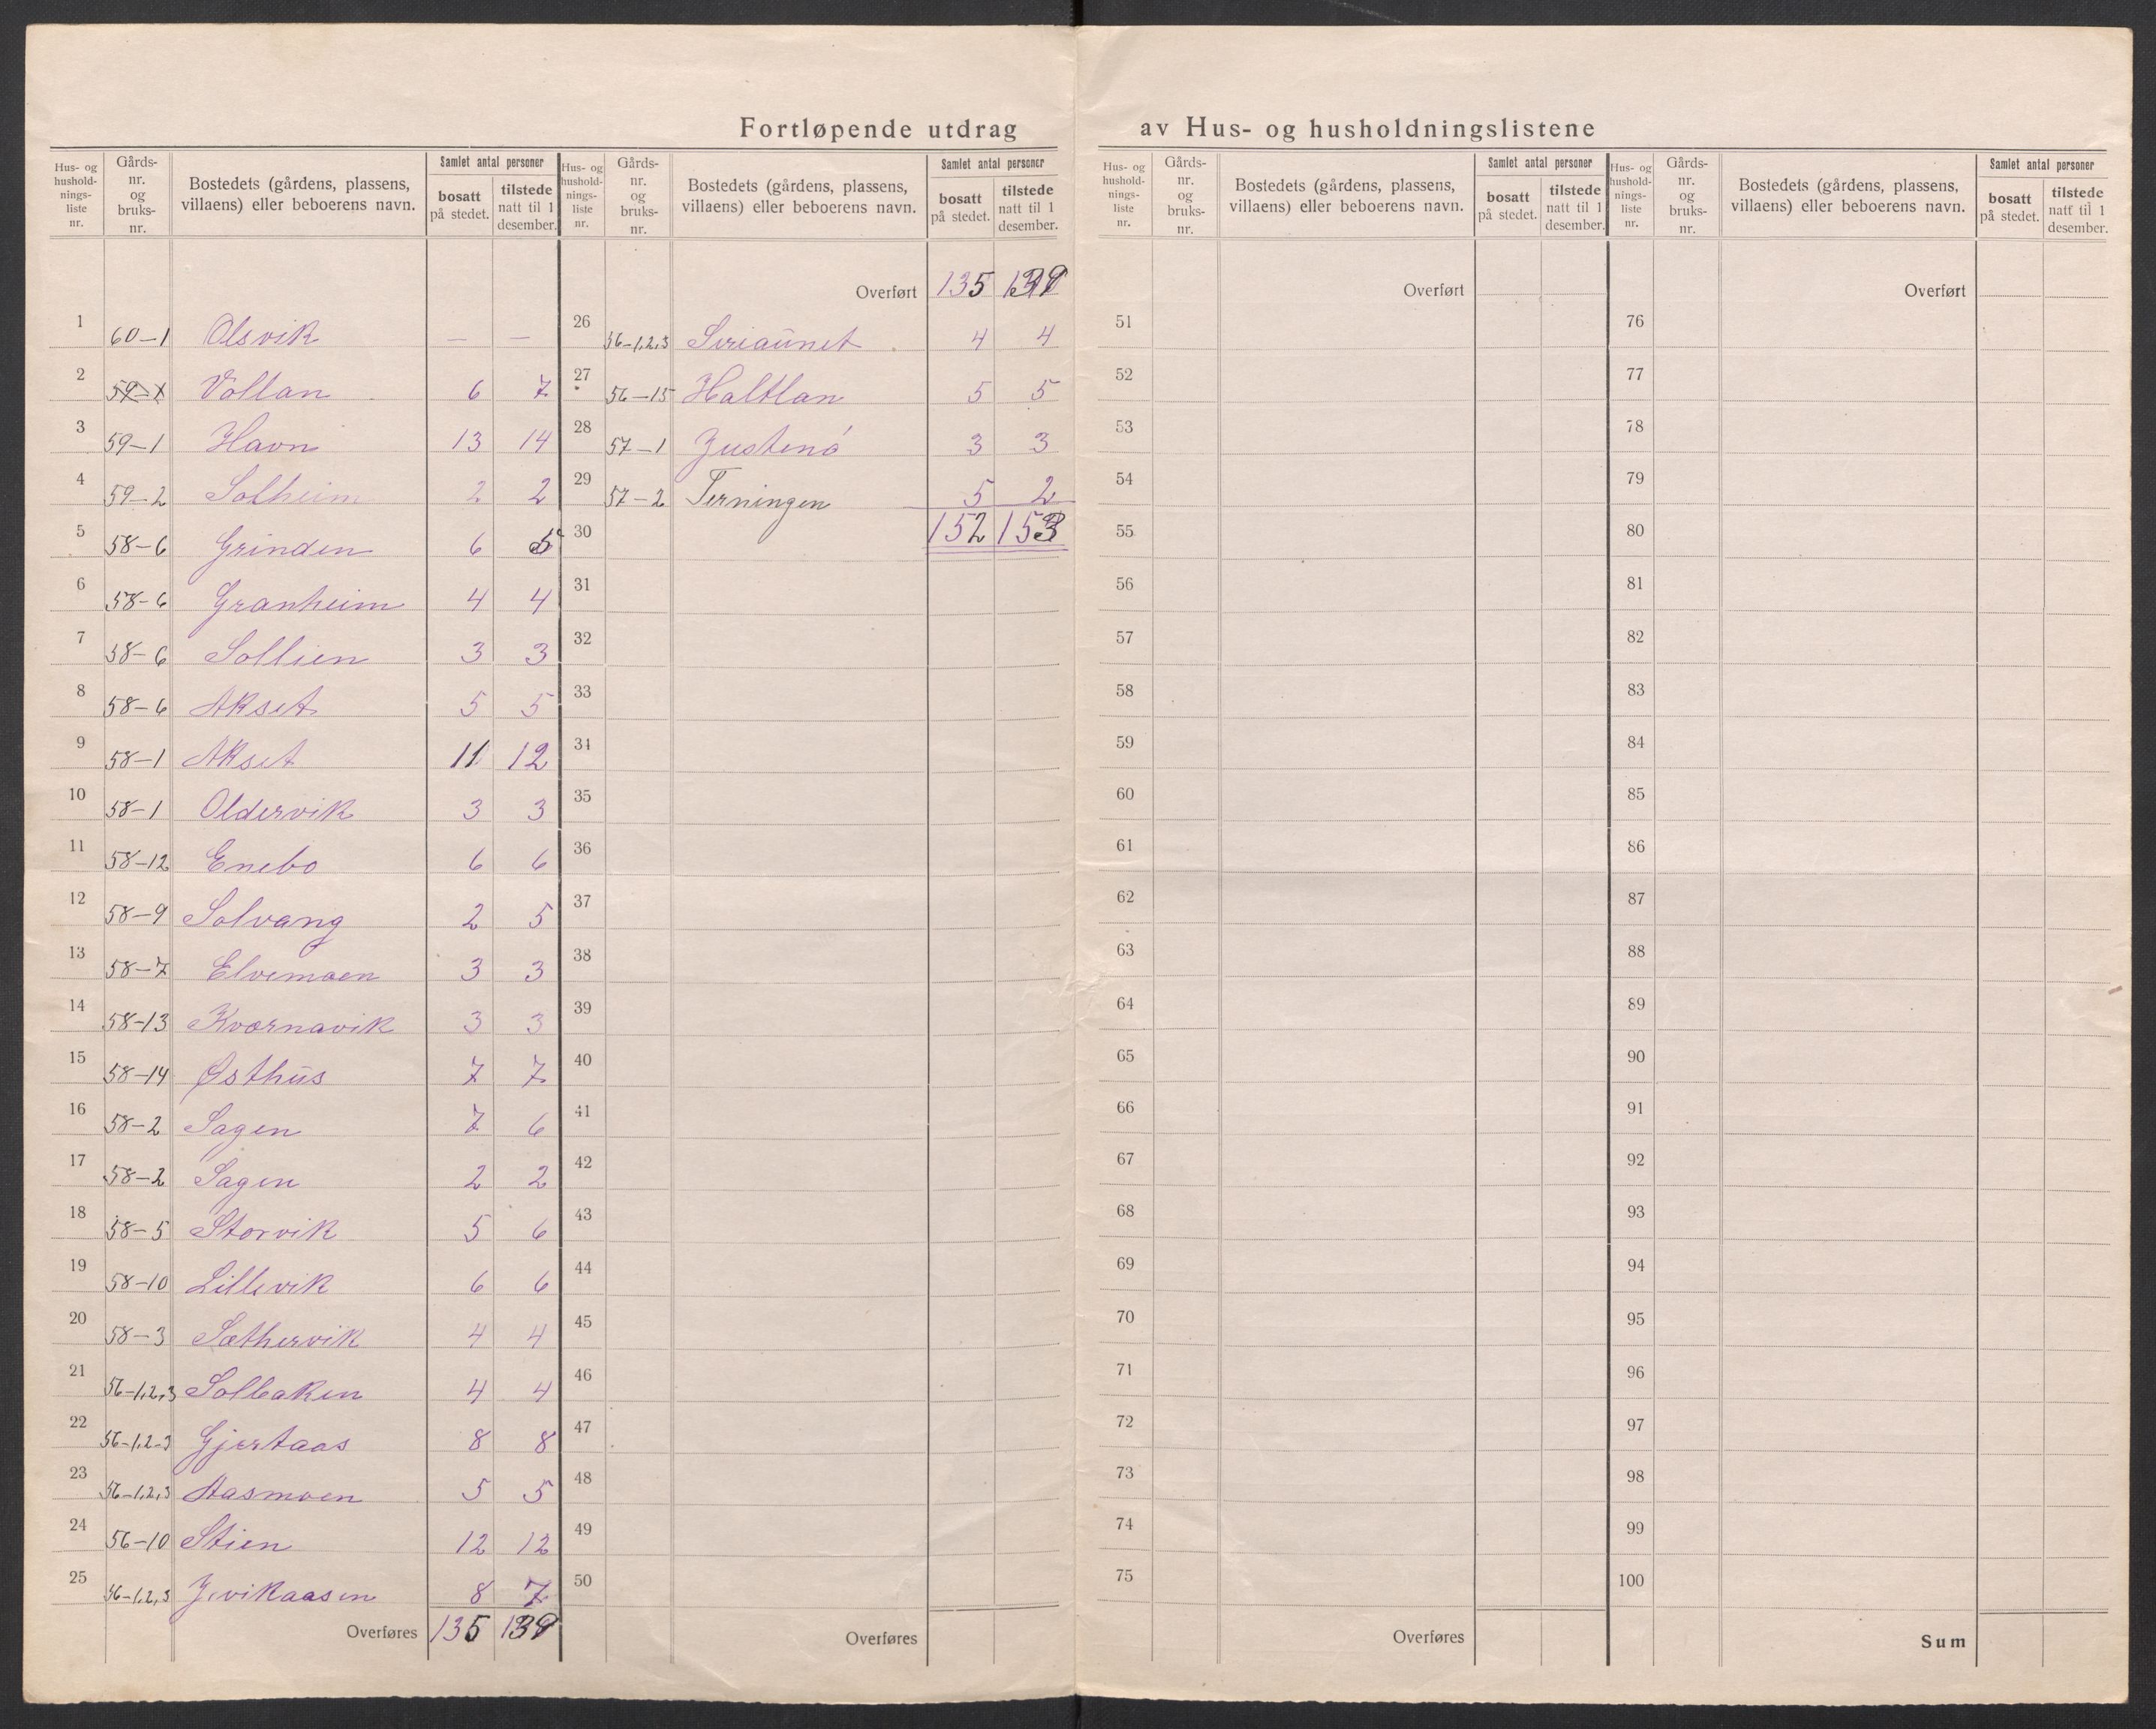 Fortløpende utdrag av Hus- og husholdningslistene
Hus- og hushold-nings-liste nr. Gårds-nr. og bruks-nr. Bostedets (gårdens, plassens, villaens) eller beboerens navn. Samlet antal personer bosatt på stedet. tilstede natt til 1 desember.
1 60–1 Olsvik — —
2 59–1 Vollan 6 7
3 59–1 Havn 13 14
4 59–2 Solheim 2 2
5 58–6 Grinden 6 5
6 58–6 Granheim 4 4
7 58–6 Sollien 3 3
8 58–6 Akset 5 5
9 58–1 Akset 11 12
10 58–1 Oldervik 3 3
11 58–12 Enebo 6 6
12 58–9 Solvang 2 5
13 58–7 Elvemoen 3 3
14 58–13 Kvernavik 3 3
15 58–14 Østhus 7 7
16 58–2 Sagen 7 6
17 58–2 Sagen 2 2
18 58–5 Storvik 5 6
19 58–10 Lillevik 6 6
20 58–3 Sæthervik 4 4
21 56–1,2,3 Solbaken 4 4
22 56–1,2–3 Gjertaas 8 8
23 56–1,2,3 Aasmoen 5 5
24 56–10 Stien 12 12
25 56–1,2,3 Jevikaasen 8 7
Overføres 135 139
Hus- og hushold-nings-liste nr. Gårds-nr. og bruks-nr. Bostedets (gårdens, plassens, villaens) eller beboerens navn. Samlet antal personer bosatt på stedet. tilstede natt til 1 desember.
Overført 135 139
26 56–1,2,3 Siriaunet 4 4
27 56–15 Haltlan 5 5
28 57–1 Justenø 3 3
29 57–2 Terningen 5 2
30 152 153
31
32
33
34
35
36
37
38
39
40
41
42
43
44
45
46
47
48
49
50
Overføres
Hus- og hushold-nings-liste nr. Gårds-nr. og bruks-nr. Bostedets (gårdens, plassens, villaens) eller beboerens navn. Samlet antal personer bosatt på stedet. tilstede natt til 1 desember.
Overført
51
52
53
54
55
56
57
58
59
60
61
62
63
64
65
66
67
68
69
70
71
72
73
74
75
Overføres
Hus- og hushold-nings-liste nr. Gårds-nr. og bruks-nr. Bostedets (gårdens, plassens, villaens) eller beboerens navn. Samlet antal personer bosatt på stedet. tilstede natt til 1 desember.
Overført
76
77
78
79
80
81
82
83
84
85
86
87
88
89
90
91
92
93
94
95
96
97
98
99
100
Sum